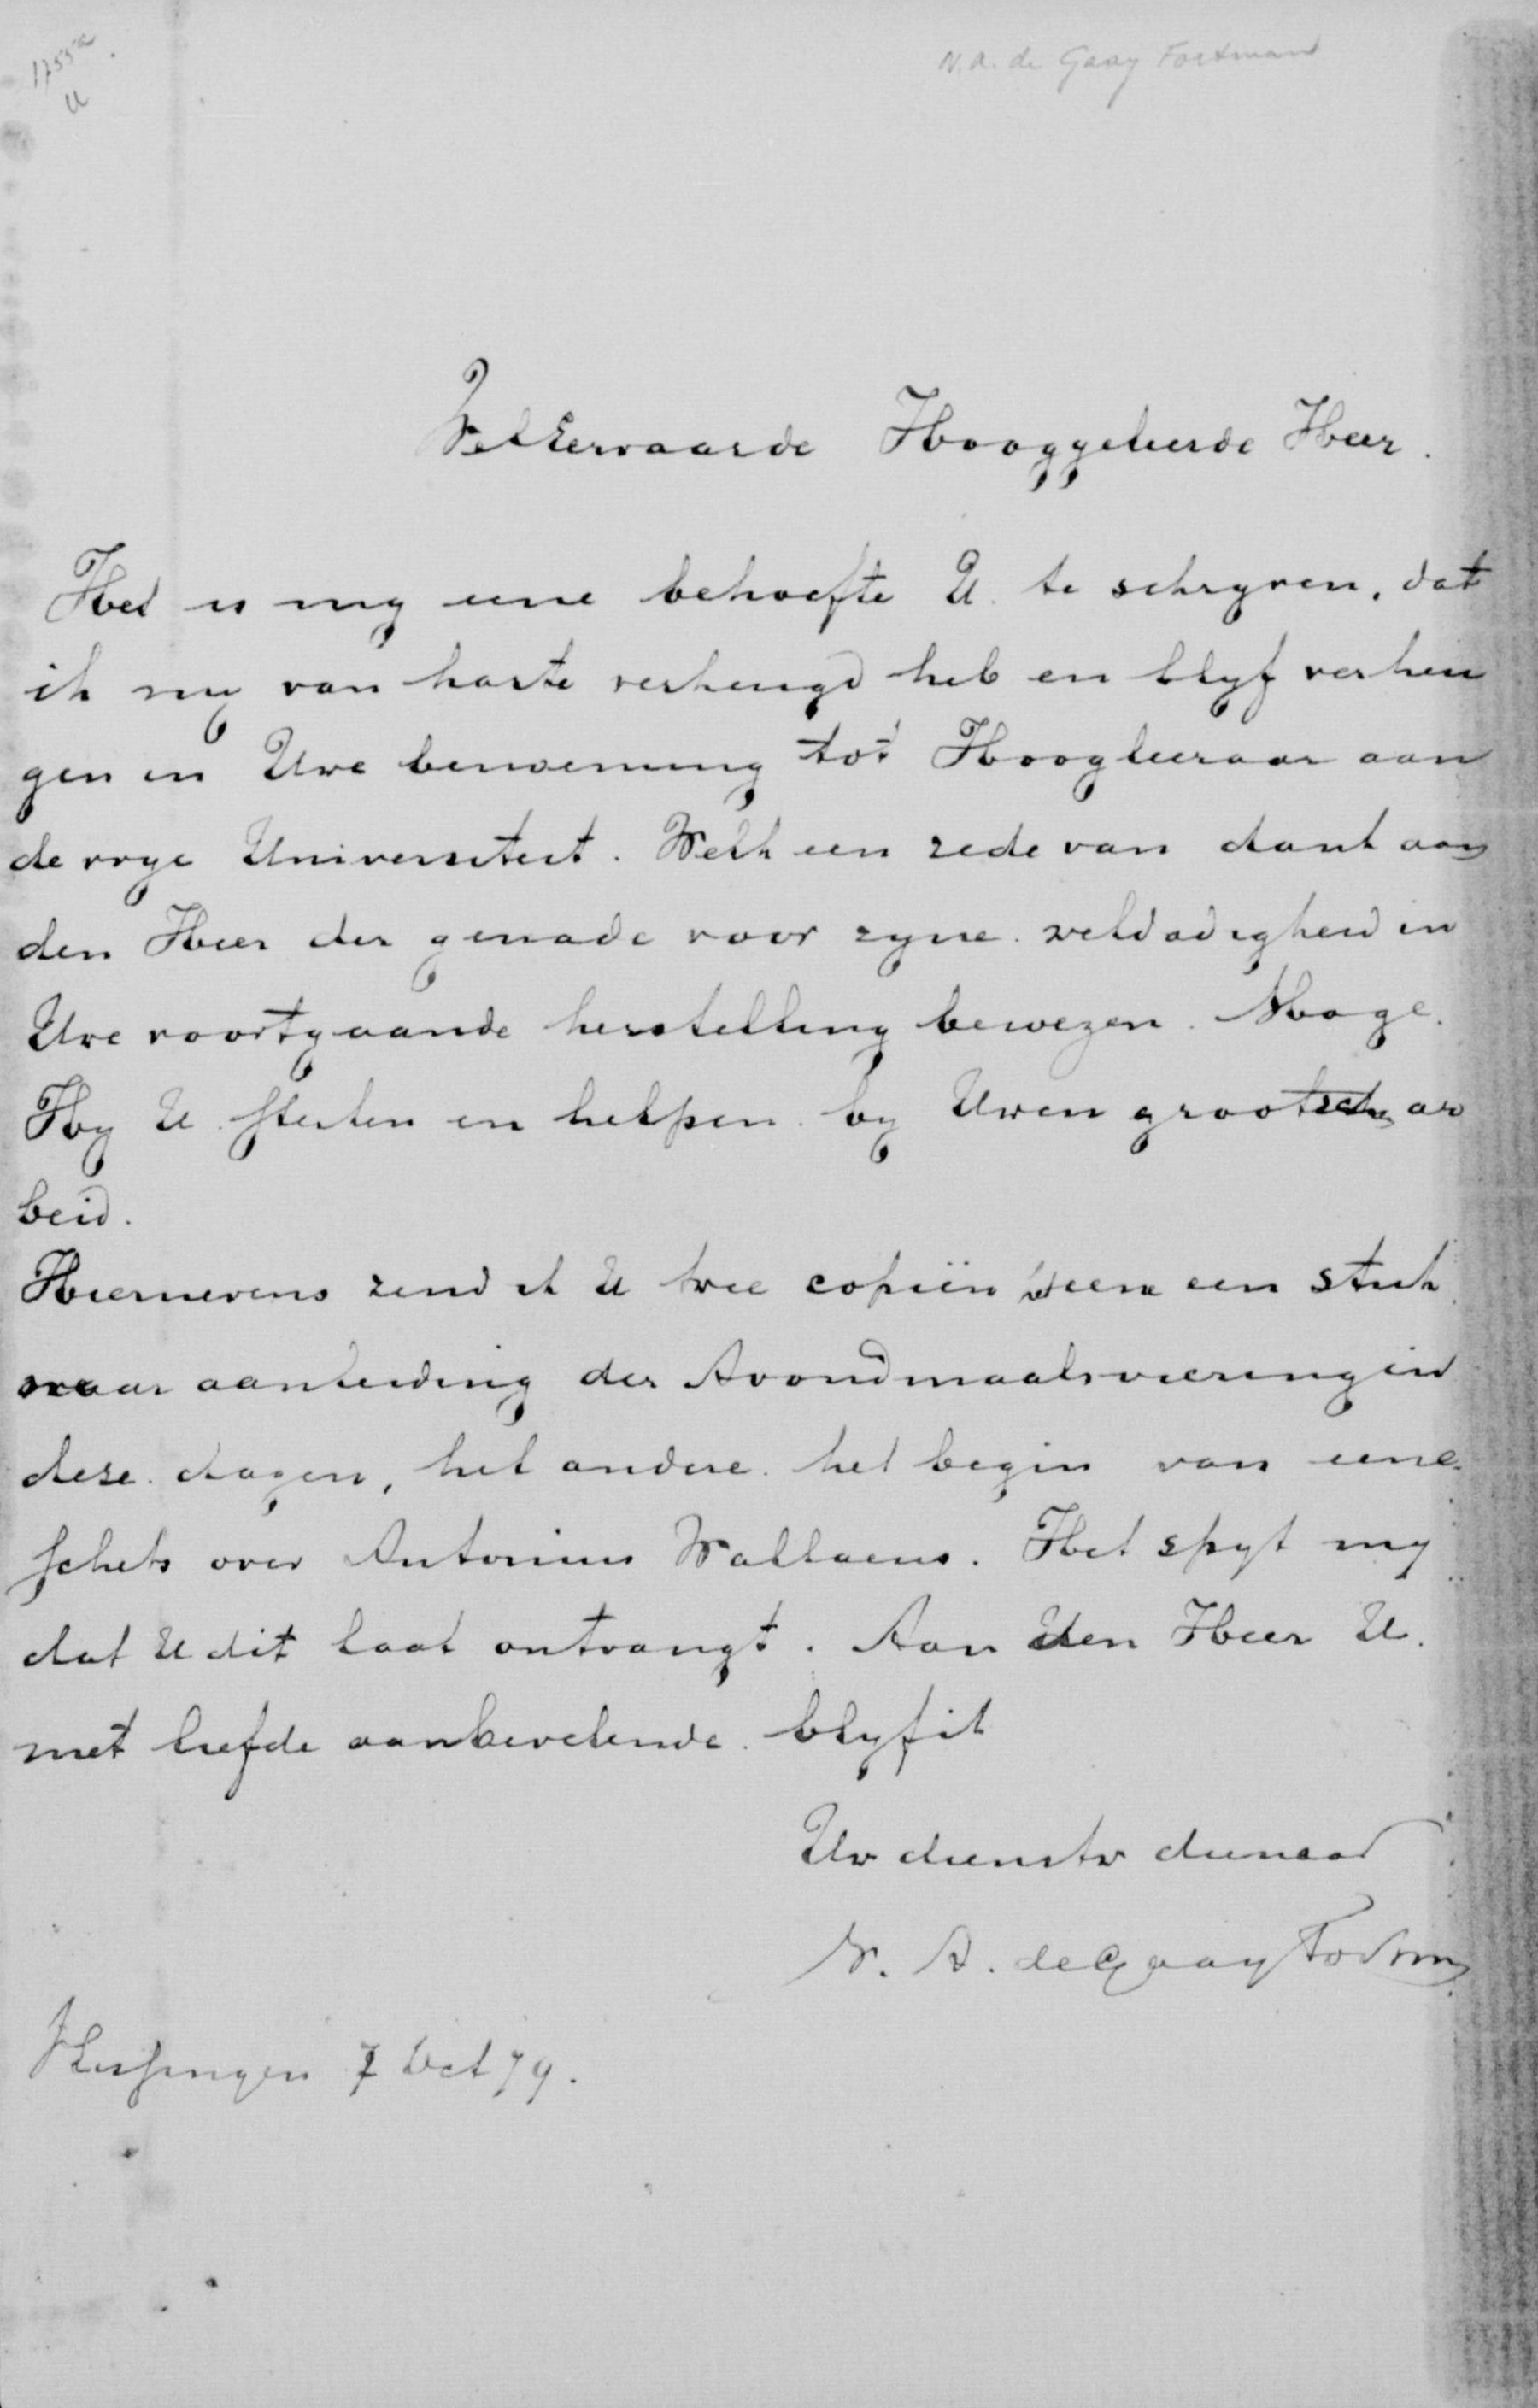 1755a
U
N.A. de Gaay Fortman
WelEerwaarde Hooggeleerde Heer.
Het is my eene behoefte U te schryven, dat
ik my van harte verheugd heb en blyf verheu
gen in Uwe benoeming tot Hoogleeraar aan
de vrye Universiteit. Welk een rede van dank aan
den Heer der genade voor zyne weldadigheid in
Uwe voortgaande herstelling bewezen. Moge
Hy U sterken en helpen by Uwen grootschen ar
beid.
Hiernevens zend ik U twee copiën een stuk
naar aanleiding der Avondmaalsvieringen in
deze dagen, het andere het begin van eene
schets over Antonius Wallaeus. Het spyt my
dat U dit laat ontvangt. Aan den Heer U
met liefde aanbevelende blyf ik
Uw dienstw dienaar
N. A. de Gaay Fortman
Vlissingen 7 Oct 79.